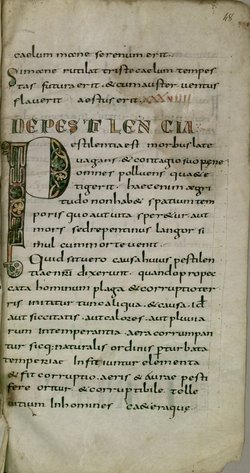 48
caelum mane serenum erit.
Si mane rutilat triste caelum tempes
tas futura erit. & cum auster ventus
flaverit aestus erit. xxxviiii
DE PESTILENCIA
Pestilentia est morbus late
vagans. & contagio suo pene
omnes polluens quae te
tigerit. haec enim aegri
tudo non habet spatium tem
poris quo aut vita sper&ur aut
mors. sed repentinus langor si
mul cum morte venit.
Quid sit vero causa huius pestilen
tiae nam dixerunt. quando pro pec
cata hominum plaga & corruptio ter
ris inicitur tunc aliqua & causa. id est
aut siccitatis. aut calores. aut pluvia
rum intemperantia aera corrumpan
tur sicq; naturalis ordinis perturbata
temperiae Inficiuntur elementa
& fit corruptio aeris & aurae pesti
fere oritur & corruptibile tolle
uitium In homines